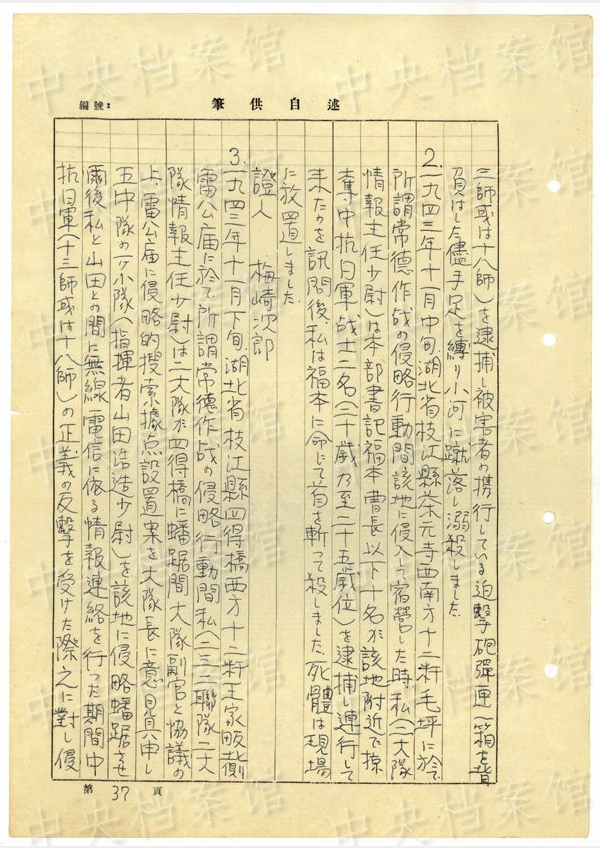 中央档案馆
編號:
筆供自述
三師或は十八師)を逮捕し被害者の携行している迫撃砲弾匣一箱を背
負はした儘手足を縛り小河に蹴落し溺殺しました
2.一九四三年十一月中旬湖北省枝江縣茶元寺西南方十二粁毛坪に於て
所謂常德作战の侵略行動間該地に侵入し宿営した時私(一大隊
情報主任少尉)は本部書記福本曹長以下十名が該地附近で掠
奪中抗日軍战士二名(二十歳乃至二十五歳位)を逮捕し連行して
来たのを訊問後、私は福本に命じて首を斬って殺しました。死體は現場
に放置しました
證人 梅崎次郎
3.一九四三年十一月下旬、湖北省枝江縣四得橋西方十二粁土家畈側
雷公庙に於て所謂常德作战の侵略行動間私(二三二聯隊二大
隊情報主任少尉)は二大隊が四得橋に蟠踞間大隊副官と協議の
上、雷公庙に侵略的搜索據点設置案を大隊長に意見具申し
五中隊の一ケ小隊(指揮者山田浩造少尉)を該地に侵略蟠踞させ
爾後私と山田との間に無線電信に依る情報連絡を行った期間中
抗日軍(十三師或は十八師)の正義の反撃を受けた際之に對し侵
第 37 頁